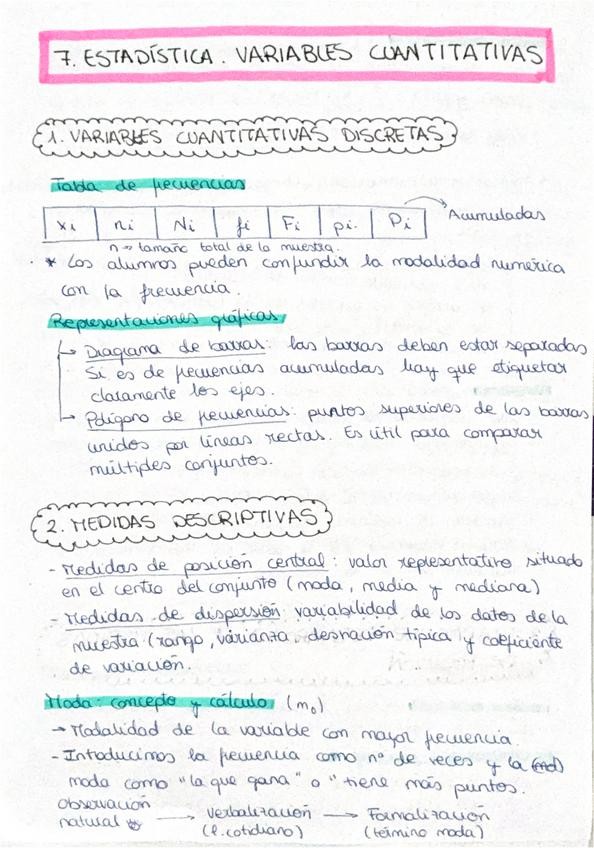 7. ESTADÍSTICA. VARIABLES CUANTITATIVAS
1. VARIABLES CUANTITATIVAS DISCRETAS
Tabla de frecuencias
xi ni Ni fi Fi pi Pi Acumuladas
n → tamaño total de la muestra.
* Los alumnos pueden confundir la modalidad numérica
con la frecuencia.
Representaciones gráficas
→ Diagrama de barras: las barras deben estar separadas
Si es de frecuencias acumuladas hay que etiquetar
claramente los ejes.
→ Polígono de frecuencias: puntos superiores de las barras
unidos por líneas rectas. Es útil para comparar
múltiples conjuntos.
2. MEDIDAS DESCRIPTIVAS
- Medidas de posición central: valor representativo situado
en el centro del conjunto (moda, media y mediana)
- Medidas de dispersión: variabilidad de los datos de la
muestra (rango, varianza, desviación típica y coeficiente
de variación.
Moda: concepto y cálculo (mo)
→ Modalidad de la variable con mayor frecuencia
- Introducimos la frecuencia como nº de veces y la
moda como "la que gana" o "tiene más puntos.
Observación
natural → Verbalización → Formalización
(l. cotidiano) (término moda)